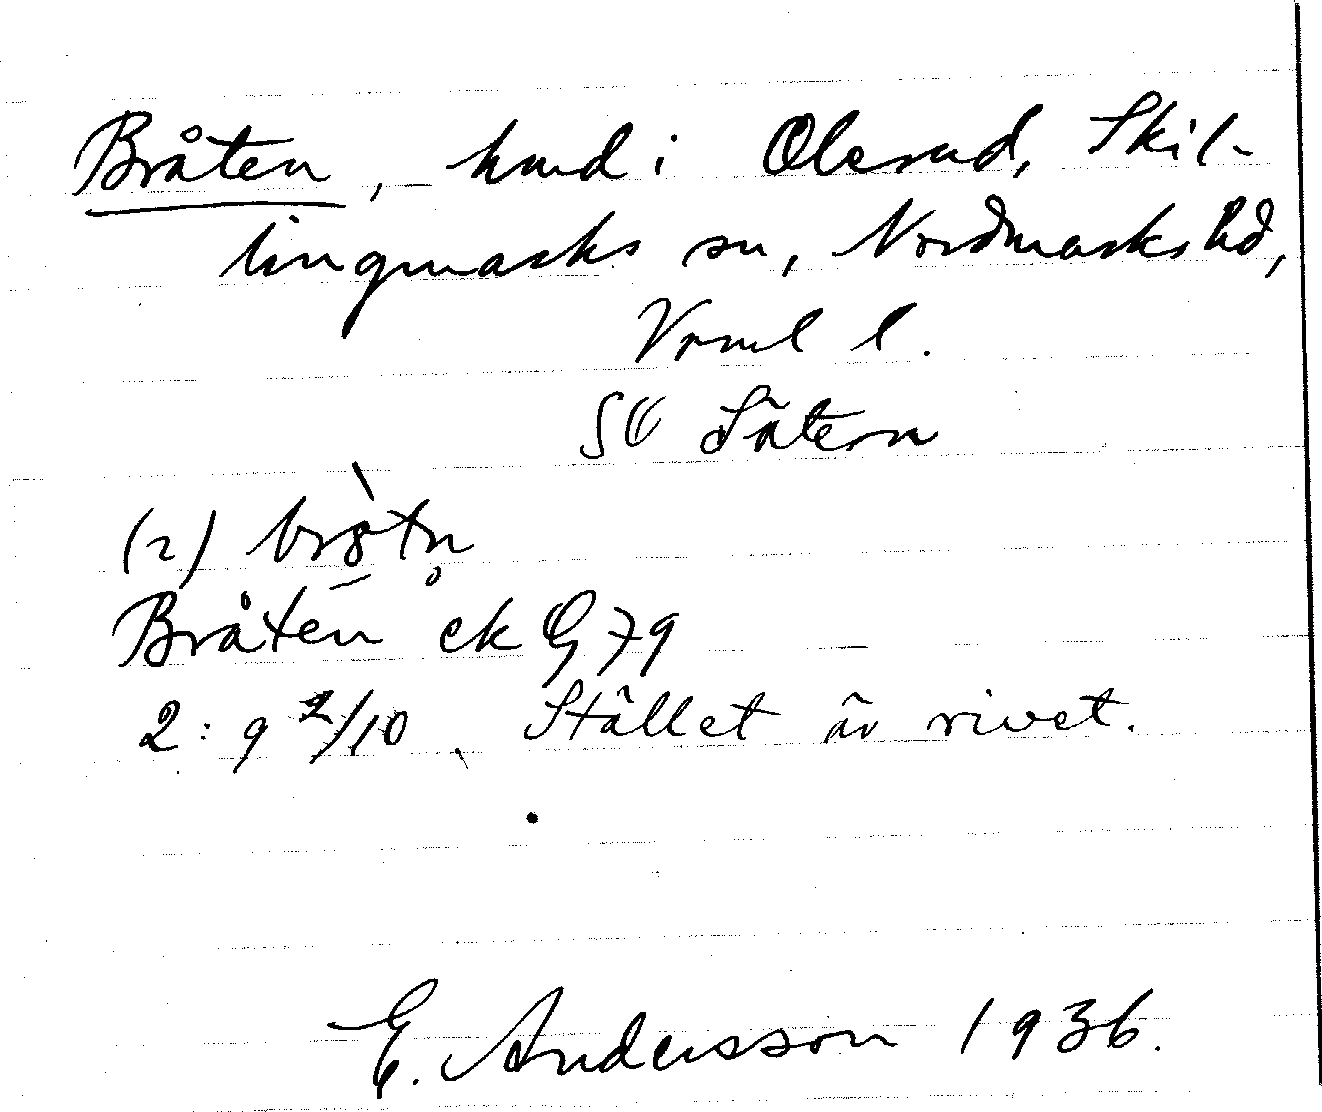 Bråten, hmd i Olerud, Skil-
lingmarks sn, Nordmarks hd,
Vrml l.
SO Sätern
(2) brǫ̀tn̥
Bråten ek G 79
2: 9 2/10. Stället är rivet.
E. Andersson 1936.